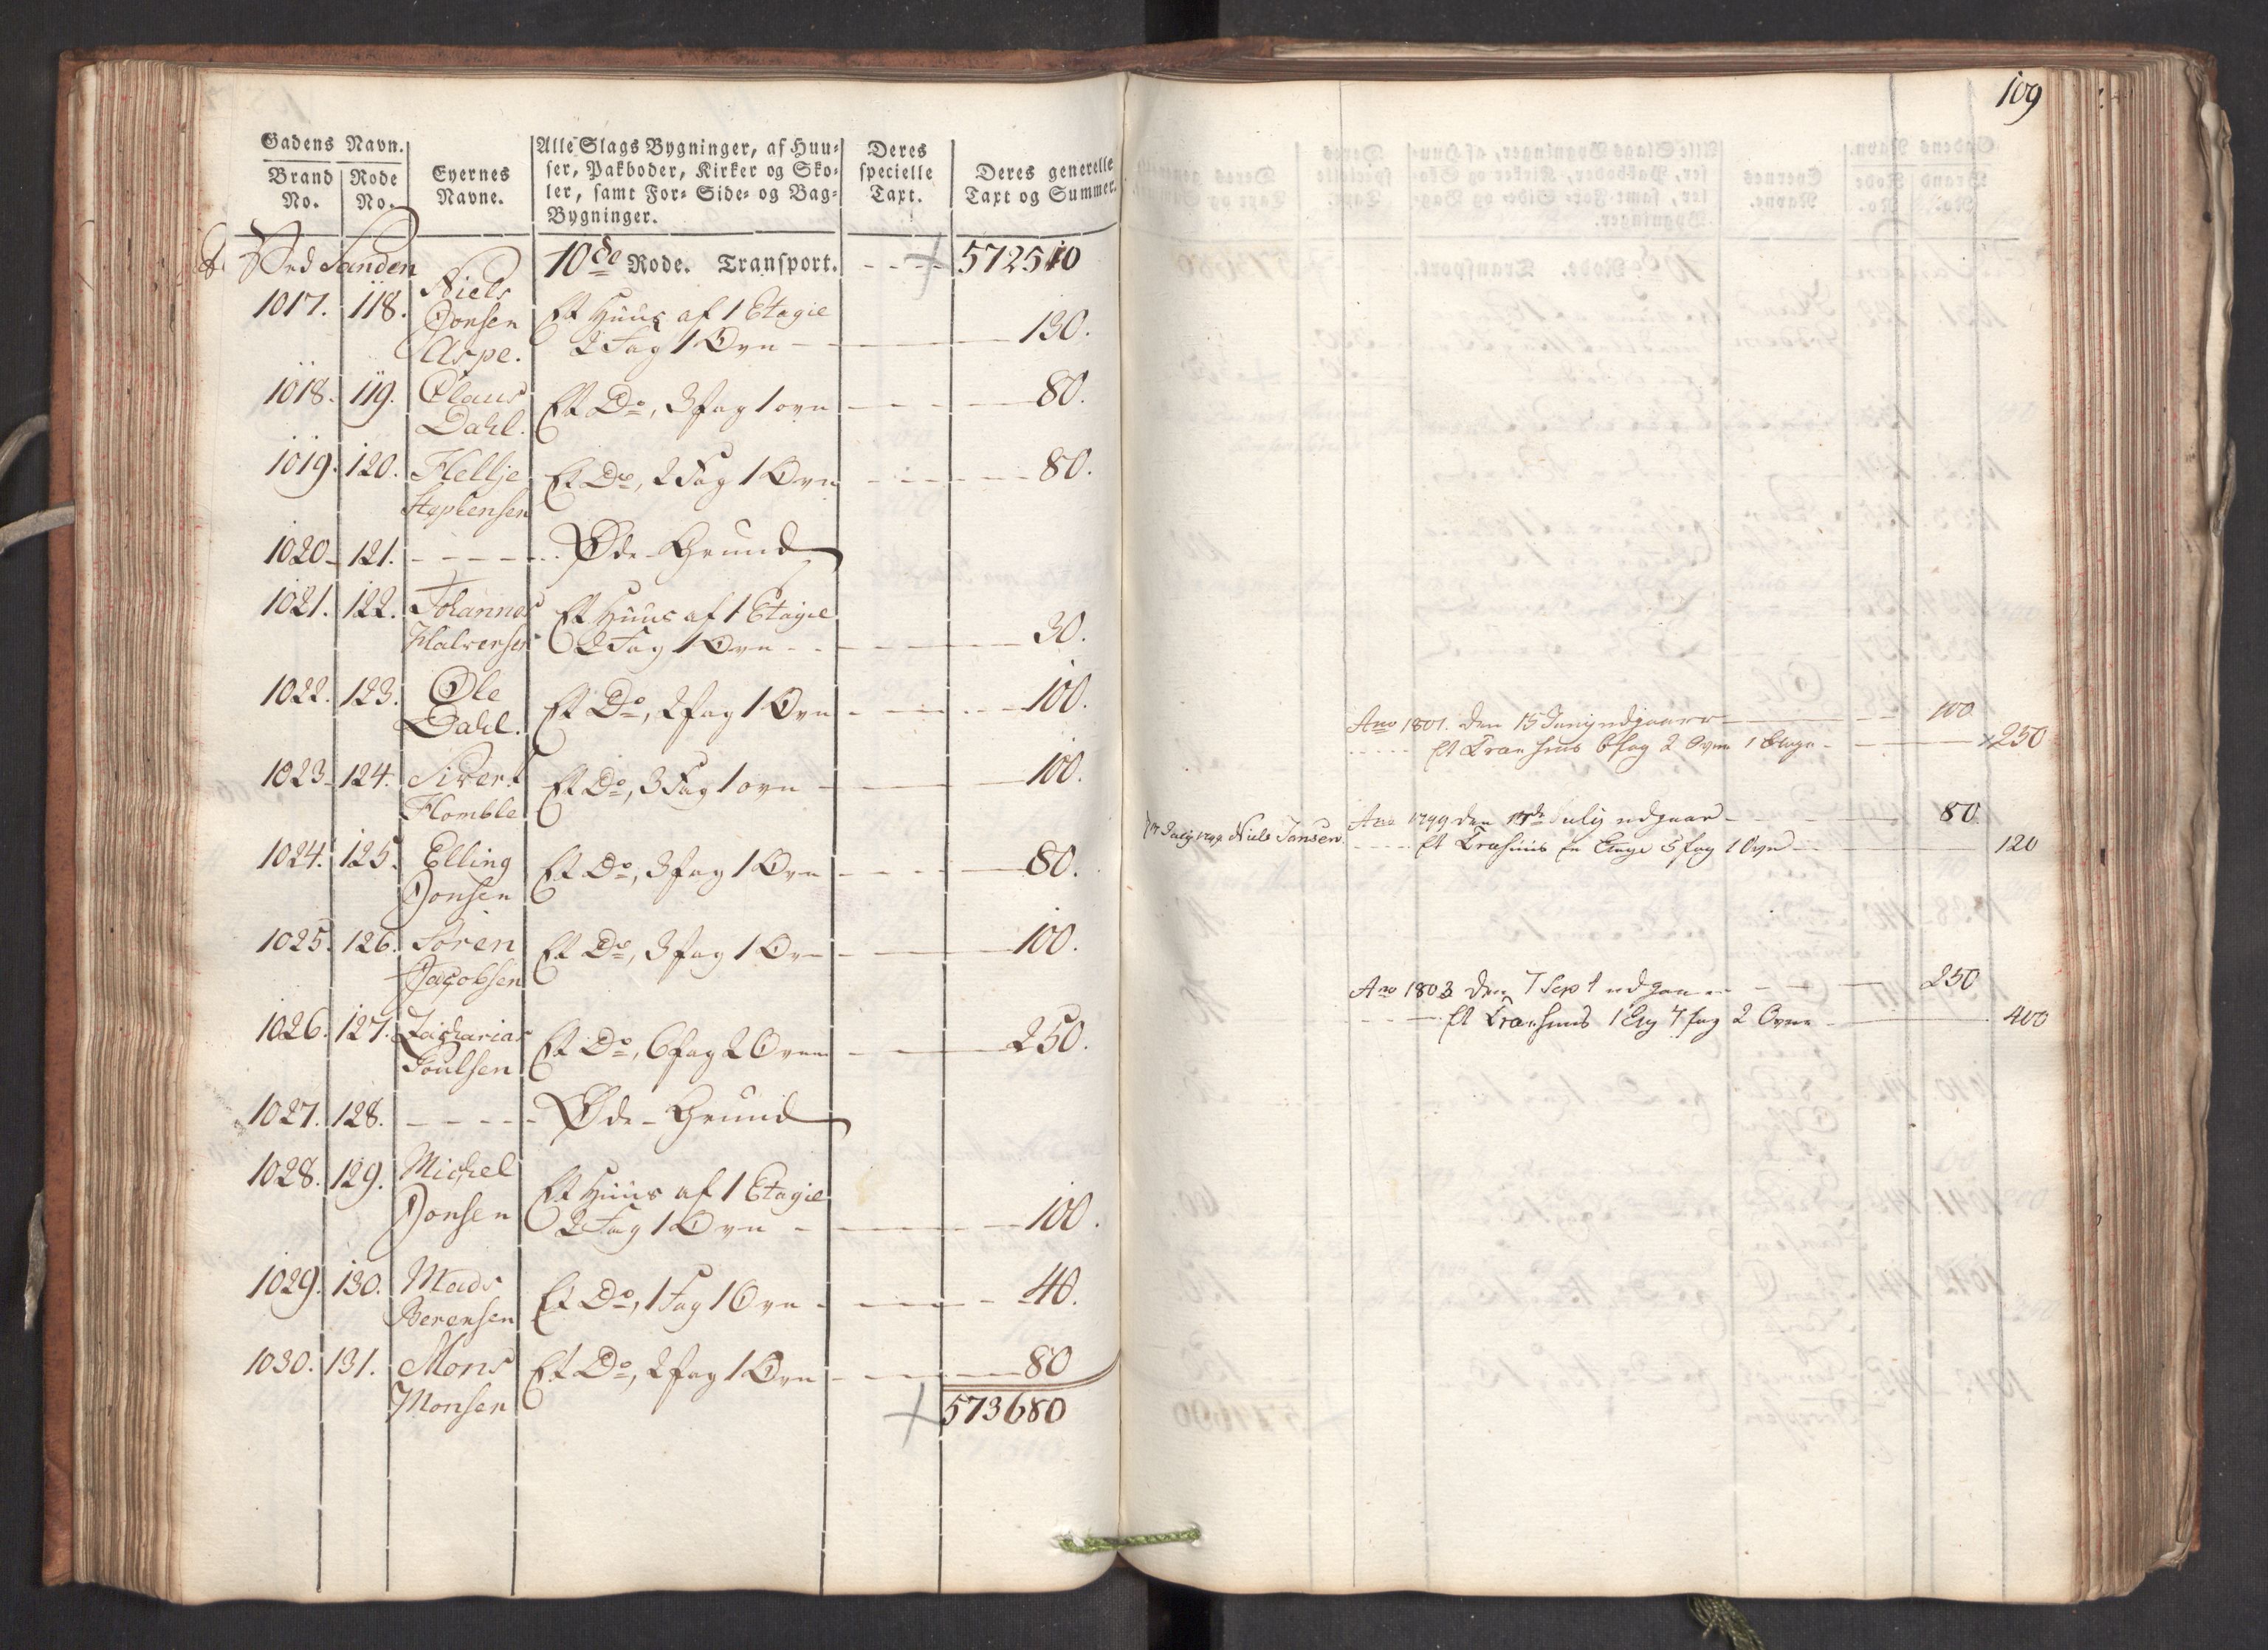 Gadens Navn.
Brand No. Rode No. Eyernes Navne. Alle Slags Bygninger, af Huu-
ser, Pakboder, Kirker og Sko-
ler, samt For- Side- og Bag-
Bygninger. Deres specielle Taxt. Deres generelle Taxt og Summer.
Ved Sanden 10de Rode. Transport. 572510
1017. 118. Niels Jonsen Aspe. Et Huus af 1 Etagie
2 Fag 1 Ovn 130.
1018. 119. Claus Dahl. Et Do, 3 fag 1 ovn 80.
1019. 120. Hellje Stephensen Et Do, 2 Fag 1 Ovn 80.
1020 121. Øde-Grund
1021. 122. Johannes Halvorsen Et Huus af 1 Etagie
2 Fag 1 Ovn 30.
1022. 123. Ole Dahl. Et Do, 2 fag 1 Ovn 100.
1023 124. Sivert Homble Et Do, 3 Fag 1 ovn 100.
1024. 125. Elling Jonsen Et Do, 3 fag 1 Ovn 80.
1025. 126. Sören Jacobsen Et Do, 3 fag 1 Ovn 100.
1026. 127. Zacharias Poulsen Et Do, 6 fag 2 Ovne 250.
1027. 128. Øde-Grund
1028. 129. Michel Jonsen Et Huus af 1 Etagie
2 Fag 1 Ovn 100.
1029. 130. Mads Berensen Et Do, 1 Fag 1 Ovn 40.
1030. 131. Mons Monsen Et Do, 2 fag 1 Ovn 80
573680
109
Ano 1801. den 15 Juny udgaar 100
Et Træhuus 6 fag 2 Ovne 1 Etage 250
17 July 1799 Niels Jansen. Ano 1799 den 17de July udgaar 80
Et Træhuus en Etage 5 fag 1 Ovn 120
Ano 1803 den 7 Sept udgaar 250
Et Træhuus 1 Etg 7 fag 2 Ovne 400